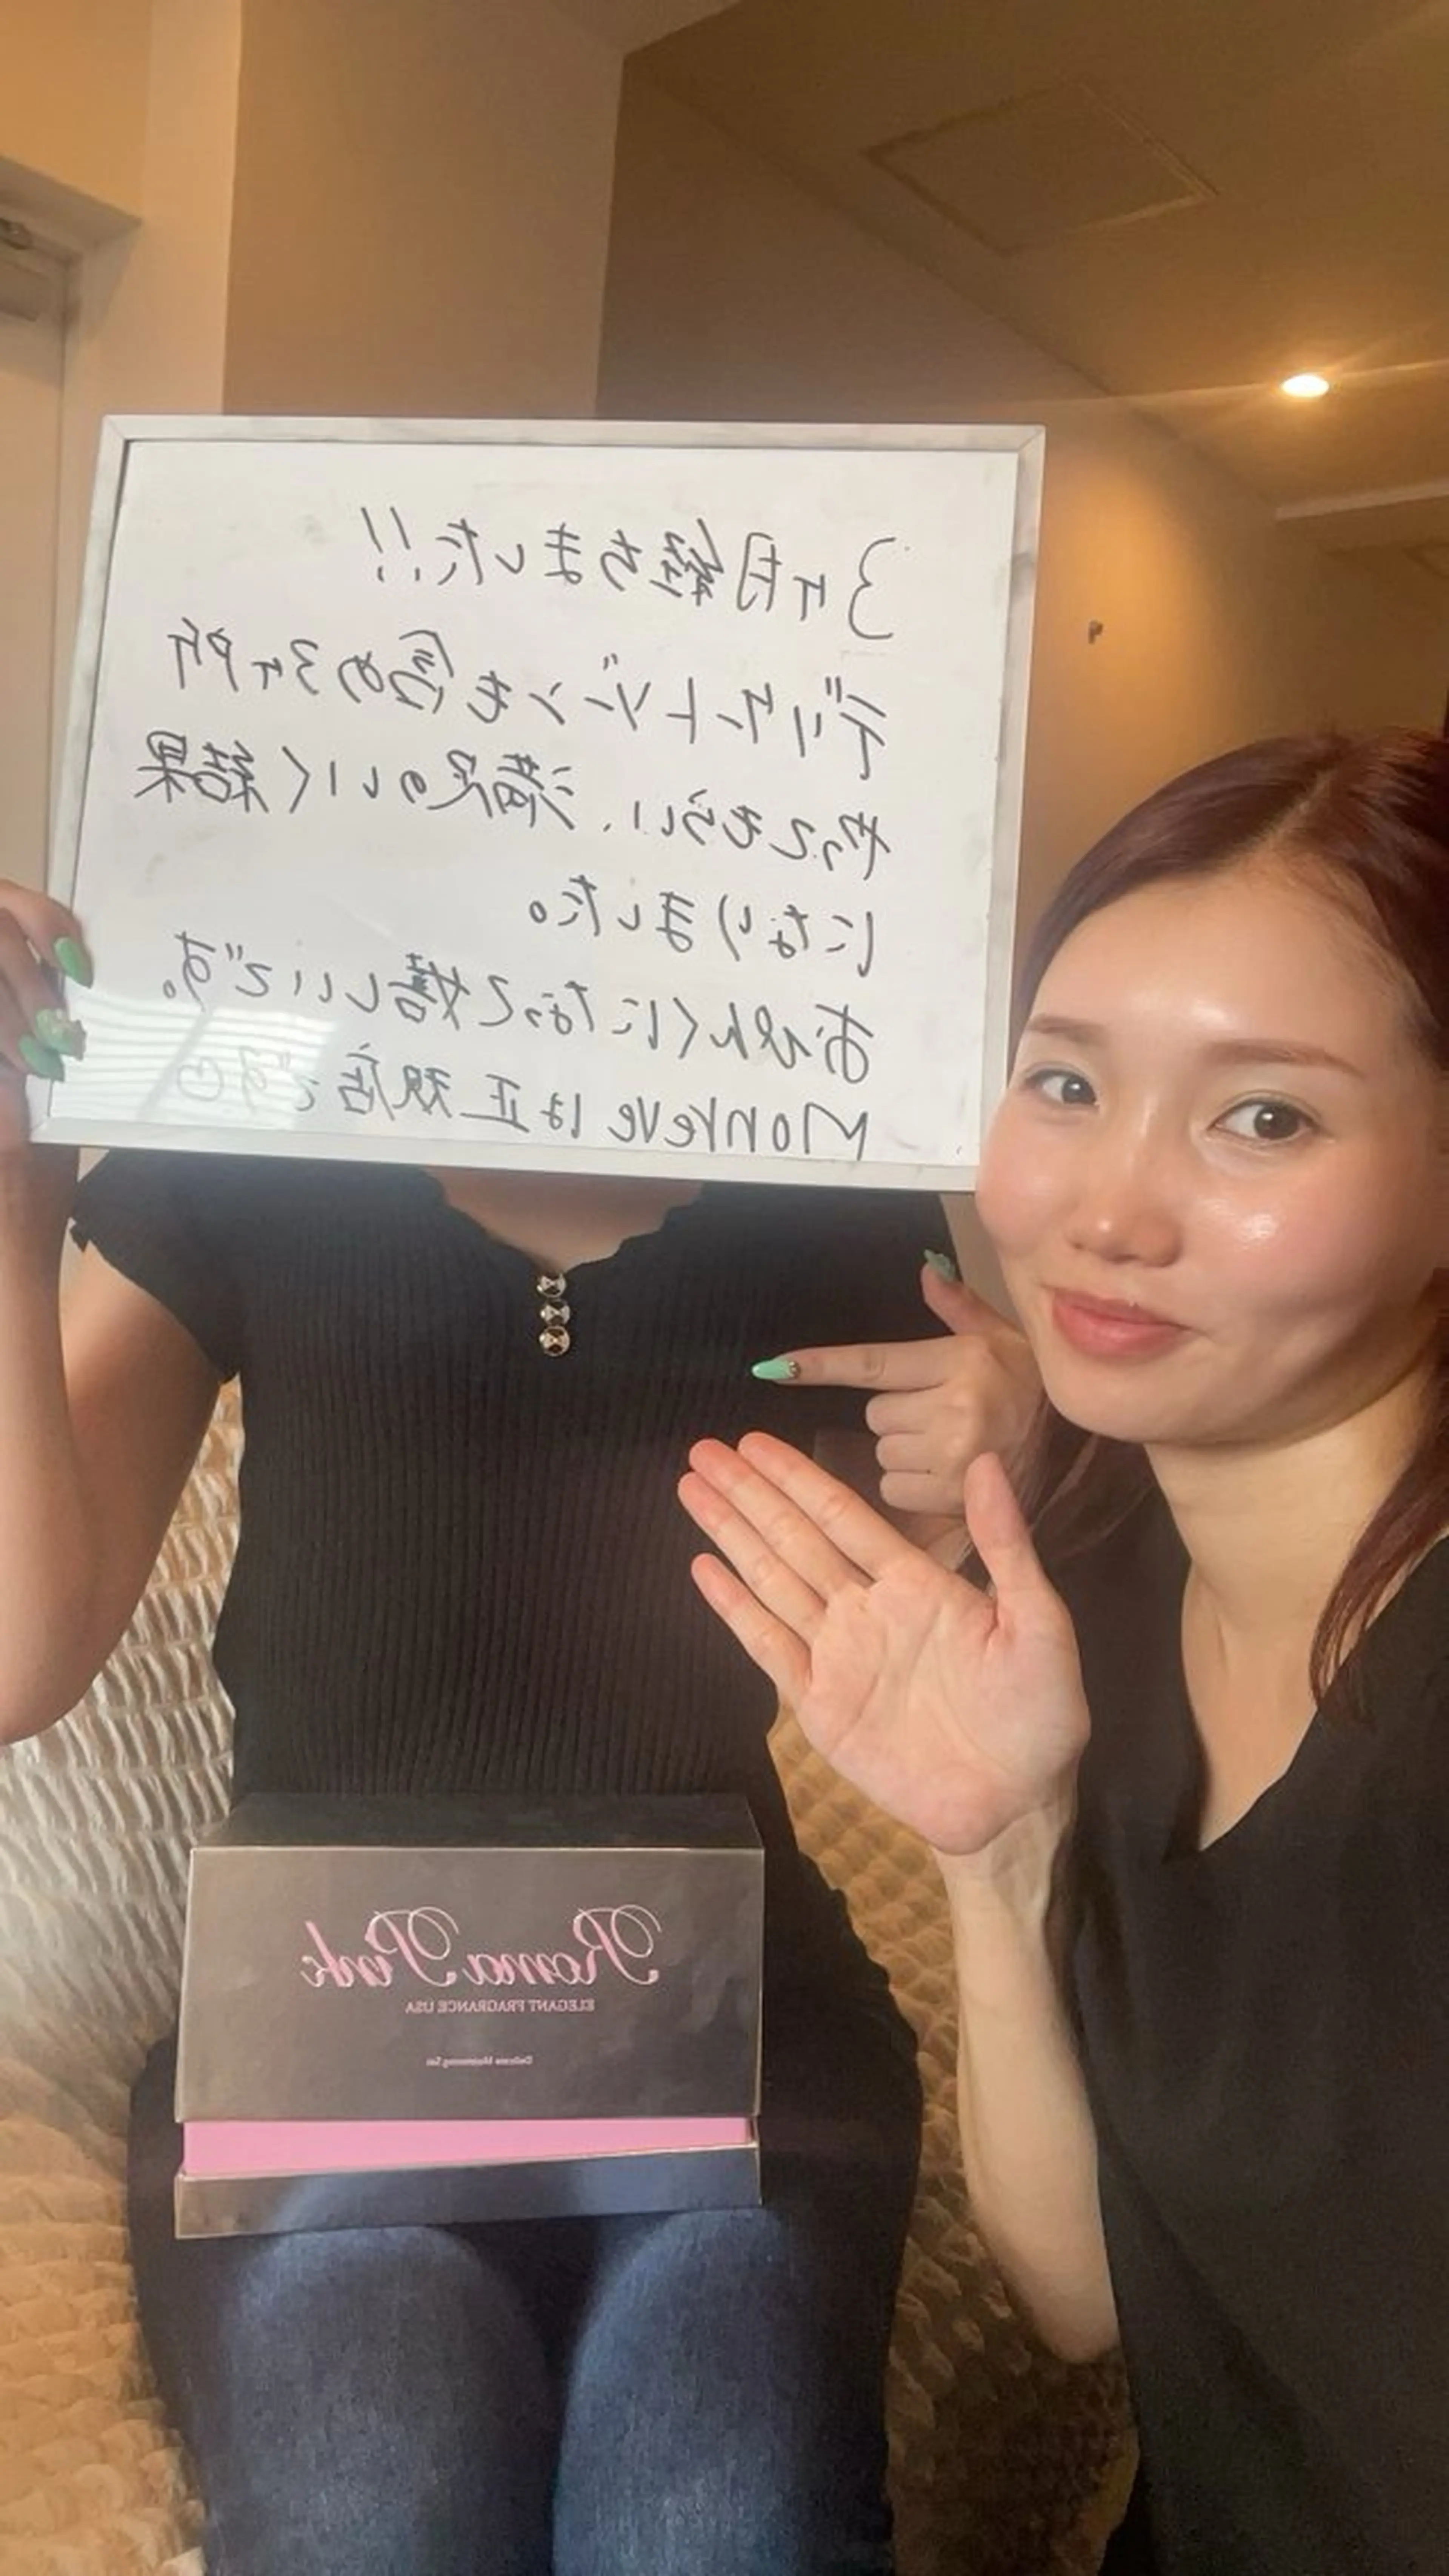 3ヶ月経ちました!!
デリケートゾーンも含め3ヶ所
やってもらい、満足のいく結果
になりました。
おぴんくになって嬉しいです。
Monreveは正規店です♡
Roma Pink
ELEGANT FRAGRANCE USA